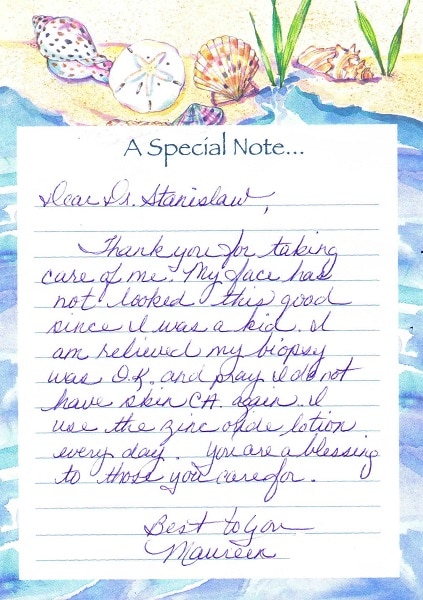 A Special Note...
Dear Dr. Stanislaw,
Thank you for taking
care of me. My face has
not looked this good
since I was a kid. I
am relieved my biopsy
was O.K. and pray I do not
have skin CA. again. I
use the zinc oxide lotion
every day. You are a blessing
to those you care for.
Best to you
Maureen